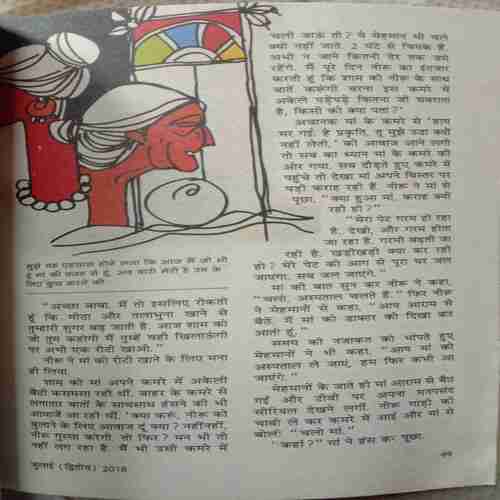 मुझे यह एहसास होने लगा कि आज मैं जो भी
हूं मां की वजह से हूं. अब बारी मेरी है उन के
लिए कुछ करने की.
"अच्छा बाबा, मैं तो इसलिए रोकती
हूं कि मीठा और तलाभुना खाने से
तुम्हारी शुगर बढ़ जाती है. आज शाम को
जो तुम कहोगी मैं तुम्हें वही खिलाऊंगी
पर अभी एक रोटी खाओ."
नीरू ने मां को रोटी खाने के लिए मना
ही लिया.
शाम को मां अपने कमरे में अकेली
बैठी कसमसा रही थीं. बाहर के कमरे से
लगातार बातों के साथसाथ हंसने की भी
आवाजें आ रही थीं. 'क्या करूं, नीरू को
बुलाने के लिए आवाज दूं क्या? नहींनहीं,
नीरू गुस्सा करेगी. तो फिर? मन भी तो
नहीं लग रहा है. मैं भी उसी कमरे में
चली जाऊं तो? ये मेहमान भी चले
क्यों नहीं जाते. 2 घंटे से चिपके हैं.
अभी न जाने कितनी देर तक जमे
रहेंगे. मैं पूरे दिन नीरू का इंतजार
करती हूं कि शाम को नीरू के साथ
बातें करूंगी वरना इस कमरे में
अकेले पड़ेपड़े कितना जी घबराता
है, किसी को क्या पता?'
अचानक मां के कमरे से 'हाय
मर गई, हे प्रकृति, तू मुझे उठा क्यों
नहीं लेती,' की आवाज आने लगी
तो सब का ध्यान मां के कमरे की
ओर गया. सब दौड़ते हुए कमरे में
पहुंचे तो देखा मां अपने बिस्तर पर
पड़ी कराह रही हैं. नीरू ने मां से
पूछा, "क्या हुआ मां, कराह क्यों
रही हो?"
"मेरा पेट गरम हो रहा
है. देखो, और गरम होता
जा रहा है. गरमी बढ़ती जा
रही है. खड़ीखड़ी क्या कर रही
हो? मेरे पेट की आग से पूरा घर जल
जाएगा. सब जल जाएंगे."
मां की बात सुन कर नीरू ने कहा,
"चलो, अस्पताल चलते हैं." फिर नीरू
ने मेहमानों से कहा, "आप आराम से
बैठें. मैं मां को डाक्टर को दिखा कर
आती हूं."
समय की नजाकत को भांपते हुए
मेहमानों ने भी कहा, "आप मां को
अस्पताल ले जाएं, हम फिर कभी आ
जाएंगे."
मेहमानों के जाते ही मां आराम से बैठ
गईं और टीवी पर अपना मनपसंद
सीरियल देखने लगीं. नीरू गाड़ी की
चाबी ले कर कमरे में आई और मां से
बोली, "चलो मां."
"कहां?" मां ने हंस कर पूछा.
जुलाई (द्वितीय) 2018